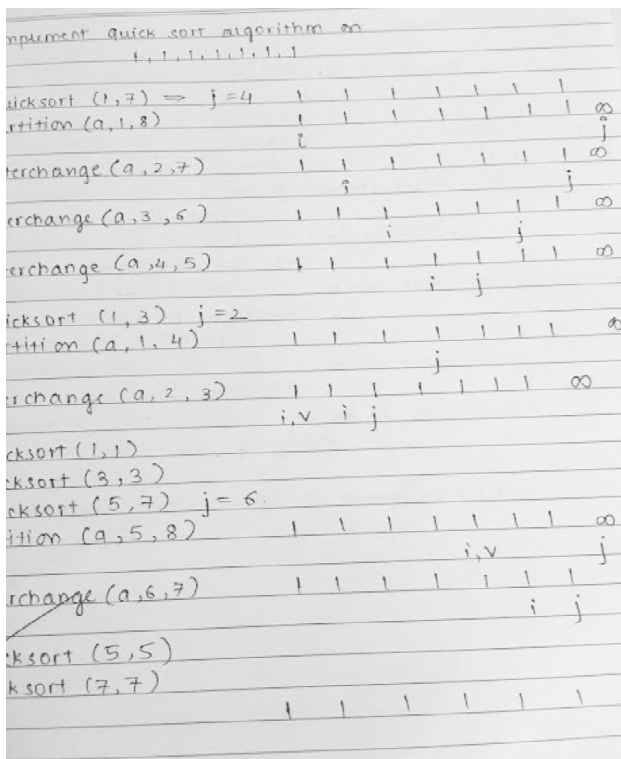 mplement quick sort algorithm on
1, 1, 1, 1, 1, 1, 1
uicksort (1,7) ⇒ j=4 1 1 1 1 1 1 1
rtition (a,1,8) 1 1 1 1 1 1 1 ∞
i j
terchange (a,2,7) 1 1 1 1 1 1 1 ∞
i j
erchange (a,3,6) 1 1 1 1 1 1 1 ∞
i j
erchange (a,4,5) 1 1 1 1 1 1 1 ∞
i j
icksort (1,3) j=2
tition (a,1,4) 1 1 1 1 1 1 1 ∞
j
rchange (a,2,3) 1 1 1 1 1 1 1 ∞
i,v i j
cksort (1,1)
cksort (3,3)
cksort (5,7) j=6.
ition (a,5,8) 1 1 1 1 1 1 1 ∞
i,v j
rchange (a,6,7) 1 1 1 1 1 1 1
i j
cksort (5,5)
ksort (7,7)
1 1 1 1 1 1 1